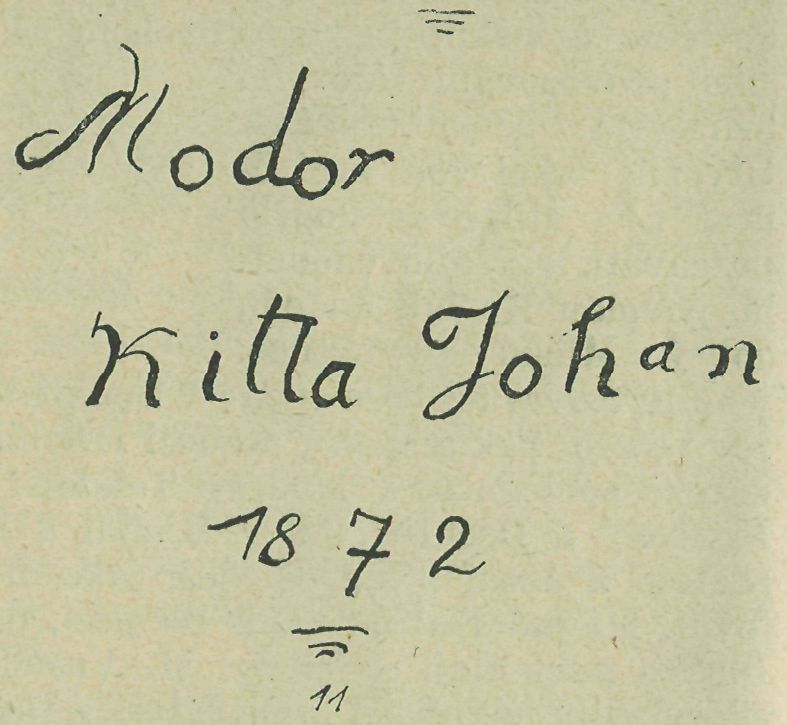 Modor
Kitta Johan
1872
11